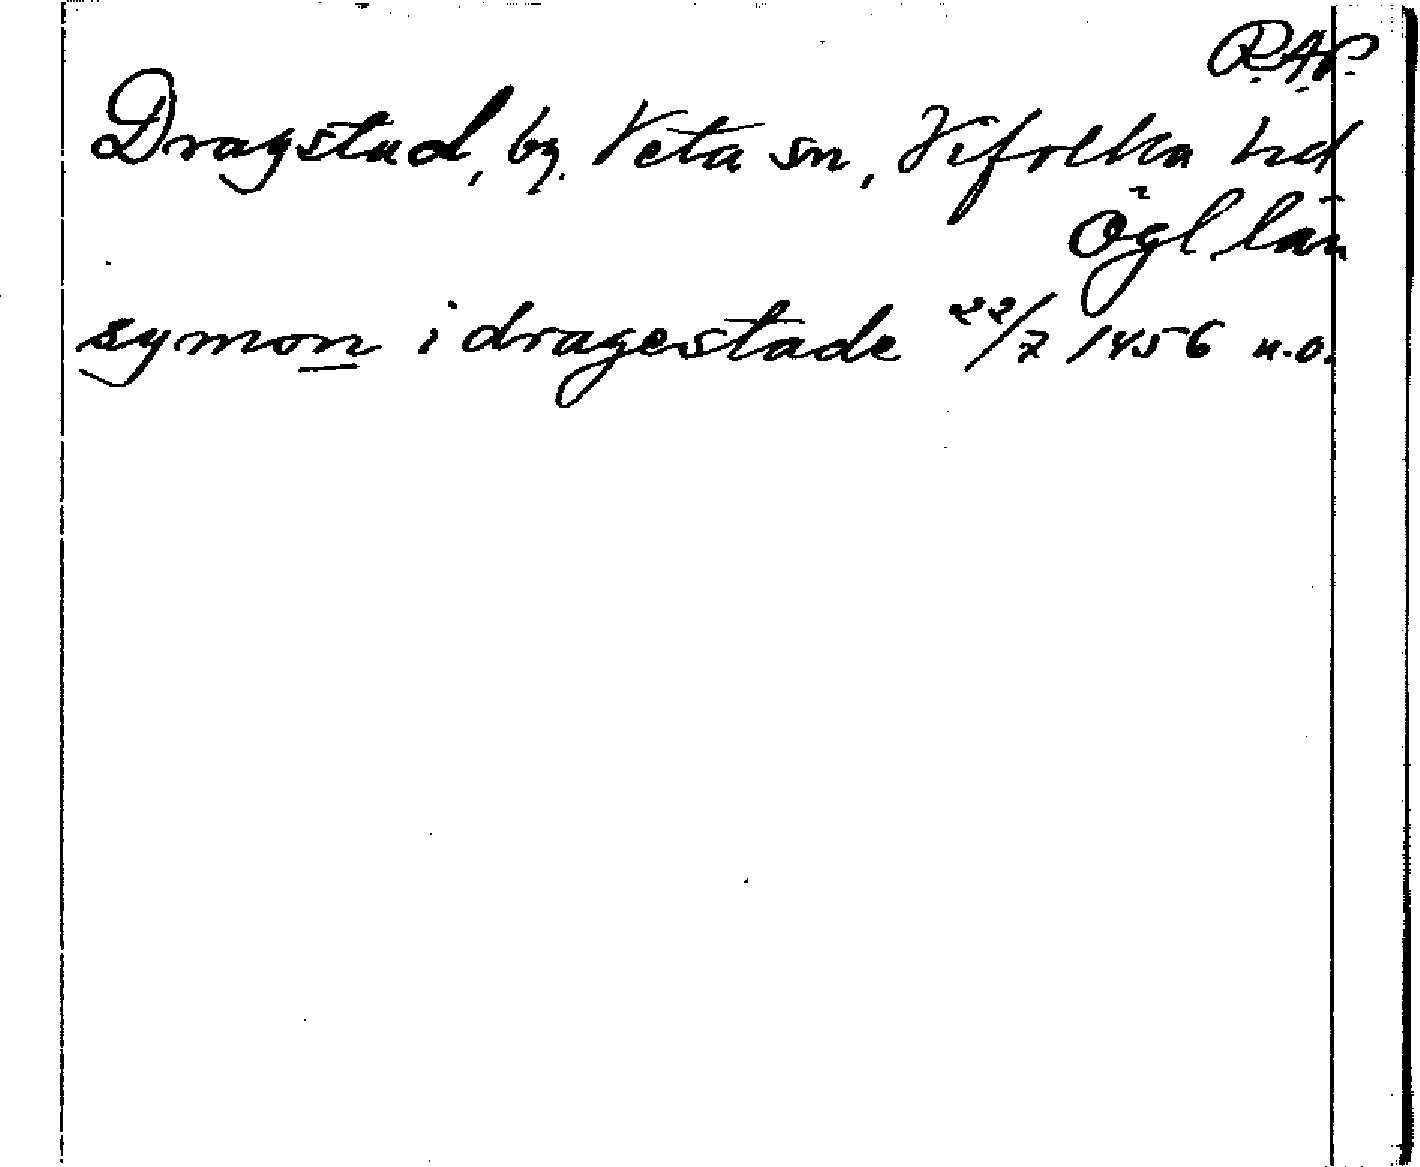 R.A.P.
Dragstad, by. Veta sn, Vifolka hd
Ögl län
symon i dragestade 22/7 1456 u.o.